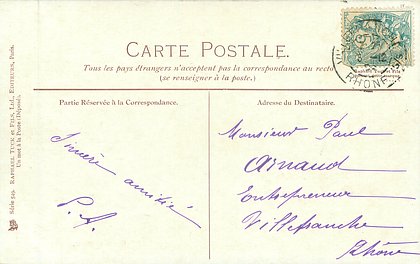 CARTE POSTALE.
Tous les pays étrangers n'acceptent pas la correspondance au recto
(se renseigner à la poste.)
Partie Réservée à la Correspondance.
Sincère amitié
P. A.
Adresse du Destinataire.
Monsieur Paul
Arnaud
Entrepreneur
Villefranche
Rhône
RHONE
Série 949. RAPHAEL TUCK et FILS, Ltd., EDITEURS, Paris.
Un mot à la Poste (Déposé).